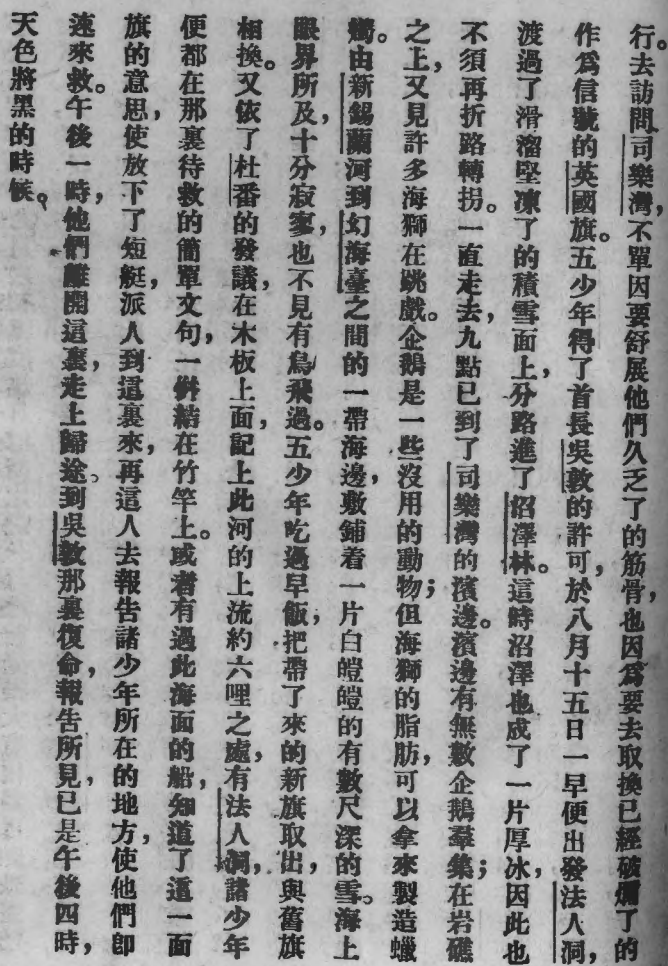 行。去訪問司樂灣，不單因要舒展他們久乏了的筋骨，也因爲要去取換已經破爛了的
作爲信號的英國旗。五少年得了首長吳敦的許可，於八月十五日一早便出發法人洞，
渡過了滑溜堅凍了的積雪面上，分路進了沼澤林。這時沼澤也成了一片厚冰，因此也
不須再折路轉拐。一直走去，九點已到了司樂灣的濱邊。濱邊有無數企鵝羣集在岩礁
之上，又見許多海獅在跳戲。企鵝是一些沒用的動物；但海獅的脂肪，可以拿來製造蠟
燭。由新錫蘭河到幻海臺之間的一帶海邊，敷鋪着一片白皚皚的有數尺深的雪。海上
眼界所及，十分寂寥，也不見有鳥飛過。五少年吃過早飯，把帶了來的新旗取出，與舊旗
相換。又依了杜番的發議，在木板上面，記上此河的上流約六哩之處，有法人洞，諸少年
便都在那裏待救的簡單文句，一倂結在竹竿上。或者有過此海面的船，知道了這一面
旗的意思，使放下了短艇，派人到這裏來，再這人去報告諸少年所在的地方，使他們卽
速來救。午後一時，他們離開這裏，走上歸途。到吳敦那裏復命，報告所見，已是午後四時，
天色將黑的時候。